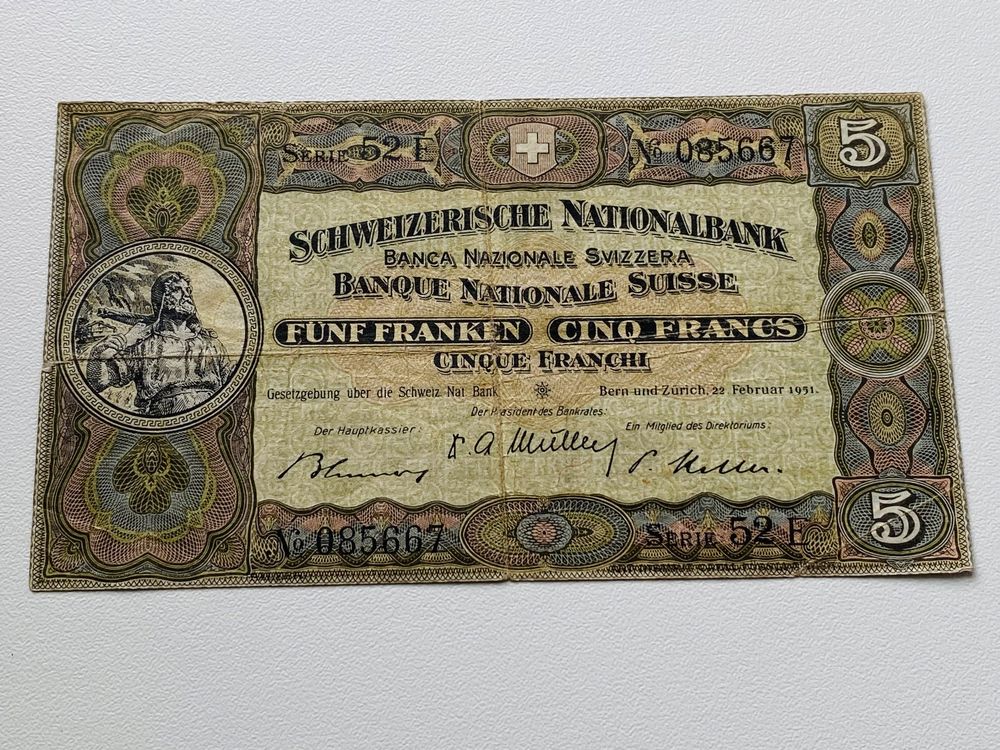 SERIE 52 E
No 085667
5
SCHWEIZERISCHE NATIONALBANK
BANCA NAZIONALE SVIZZERA
BANQUE NATIONALE SUISSE
FÜNF FRANKEN CINQ FRANCS
CINQUE FRANCHI
Gesetzgebung über die Schweiz Nat Bank
Bern und Zürich, 22 Februar 1951.
Der Präsident des Bankrates:
Der Hauptkassier:
Ein Mitglied des Direktoriums:
Müller
P. Keller.
No 085667
SERIE 52 E
5